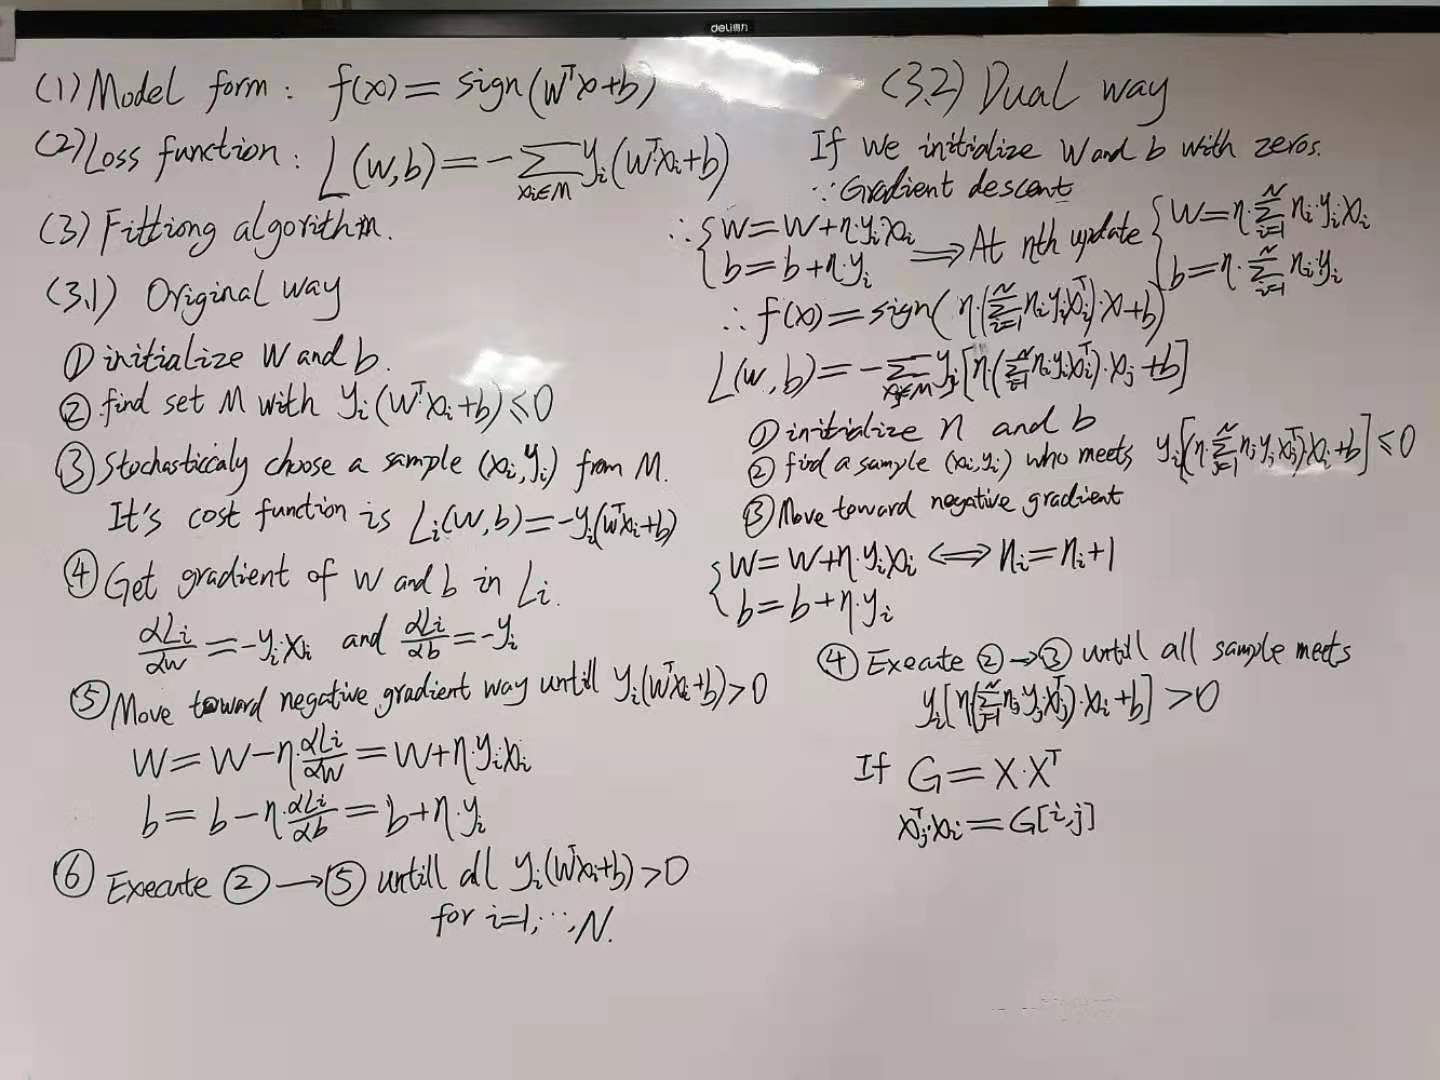 deli得力
(1) Model form: f(x) = sign(wᵀx+b)
(2) Loss function: L(w,b) = -∑_{xi∈M} yi(wᵀxi+b)
(3) Fittiong algorithm.
(3.1) Original way
① initialize w and b.
② find set M with yi(wᵀxi+b) ≤ 0
③ Stochasticcaly choose a sample (xi,yi) from M.
It's cost function is Li(w,b) = -yi(wᵀxi+b)
④ Get gradient of w and b in Li.
αLi/αw = -yi·xi and αLi/αb = -yi
⑤ Move toward negative gradient way untill yi(wᵀxi+b) > 0
w = w - η·αLi/αw = w + η·yixi
b = b - η·αLi/αb = b + η·yi
⑥ Execute ② → ⑤ untill all yi(wᵀxi+b) > 0
for i=1,⋯,N.
(3.2) Dual way
If we initialize w and b with zeros.
∵ Gradient descent
∴ { w = w + η·yi·xi ⟹ At nth update { w = η·∑_{i=1}^{N} ni·yi·xi
b = b + η·yi b = η·∑_{i=1}^{N} ni·yi
∴ f(x) = sign(η·(∑_{i=1}^{N} niyixiᵀ)·x+b)
L(w,b) = -∑_{xj∈M} yj[η·(∑_{i=1}^{N} niyixiᵀ)·xj+b]
① initialize n and b
② find a sample (xi,yi) who meets yi[(η·∑_{j=1}^{N} njyjxjᵀ)·xi+b] ≤ 0
③ Move toward negative gradient
{ w = w + η·yixi ⟺ ni = ni+1
b = b + η·yi
④ Execute ② → ③ untill all sample meets
yi[η(∑_{j=1}^{N} njyjxjᵀ)·xi+b] > 0
If G = X·Xᵀ
xjᵀ·xi = G[i,j]